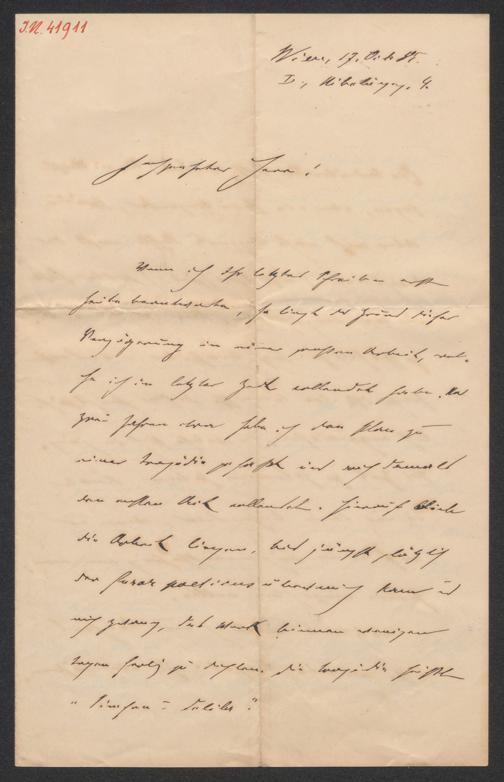 I.N. 41911
Wien, 17. Okt. 85.
I., Nibelungeng. 4.
Hochgeehrter Herr!
Wenn ich Ihr letztes Schreiben erst
heute beantworte, so liegt der Grund dieser
Verzögerung in einer großen Arbeit, wel-
che ich in letzter Zeit vollendet habe. Vor
zwei Jahren etwa habe ich den Plan zu
einer Tragödie gefaßt und auch damals
den ersten Akt vollendet. Hierauf blieb
die Arbeit liegen, bis jüngst plötzlich
der furor poeticus über mich kam und
mich zwang, das Werk binnen wenigen
Tagen fertig zu stellen. Die Tragödie heißt
"Simson u. Delila".